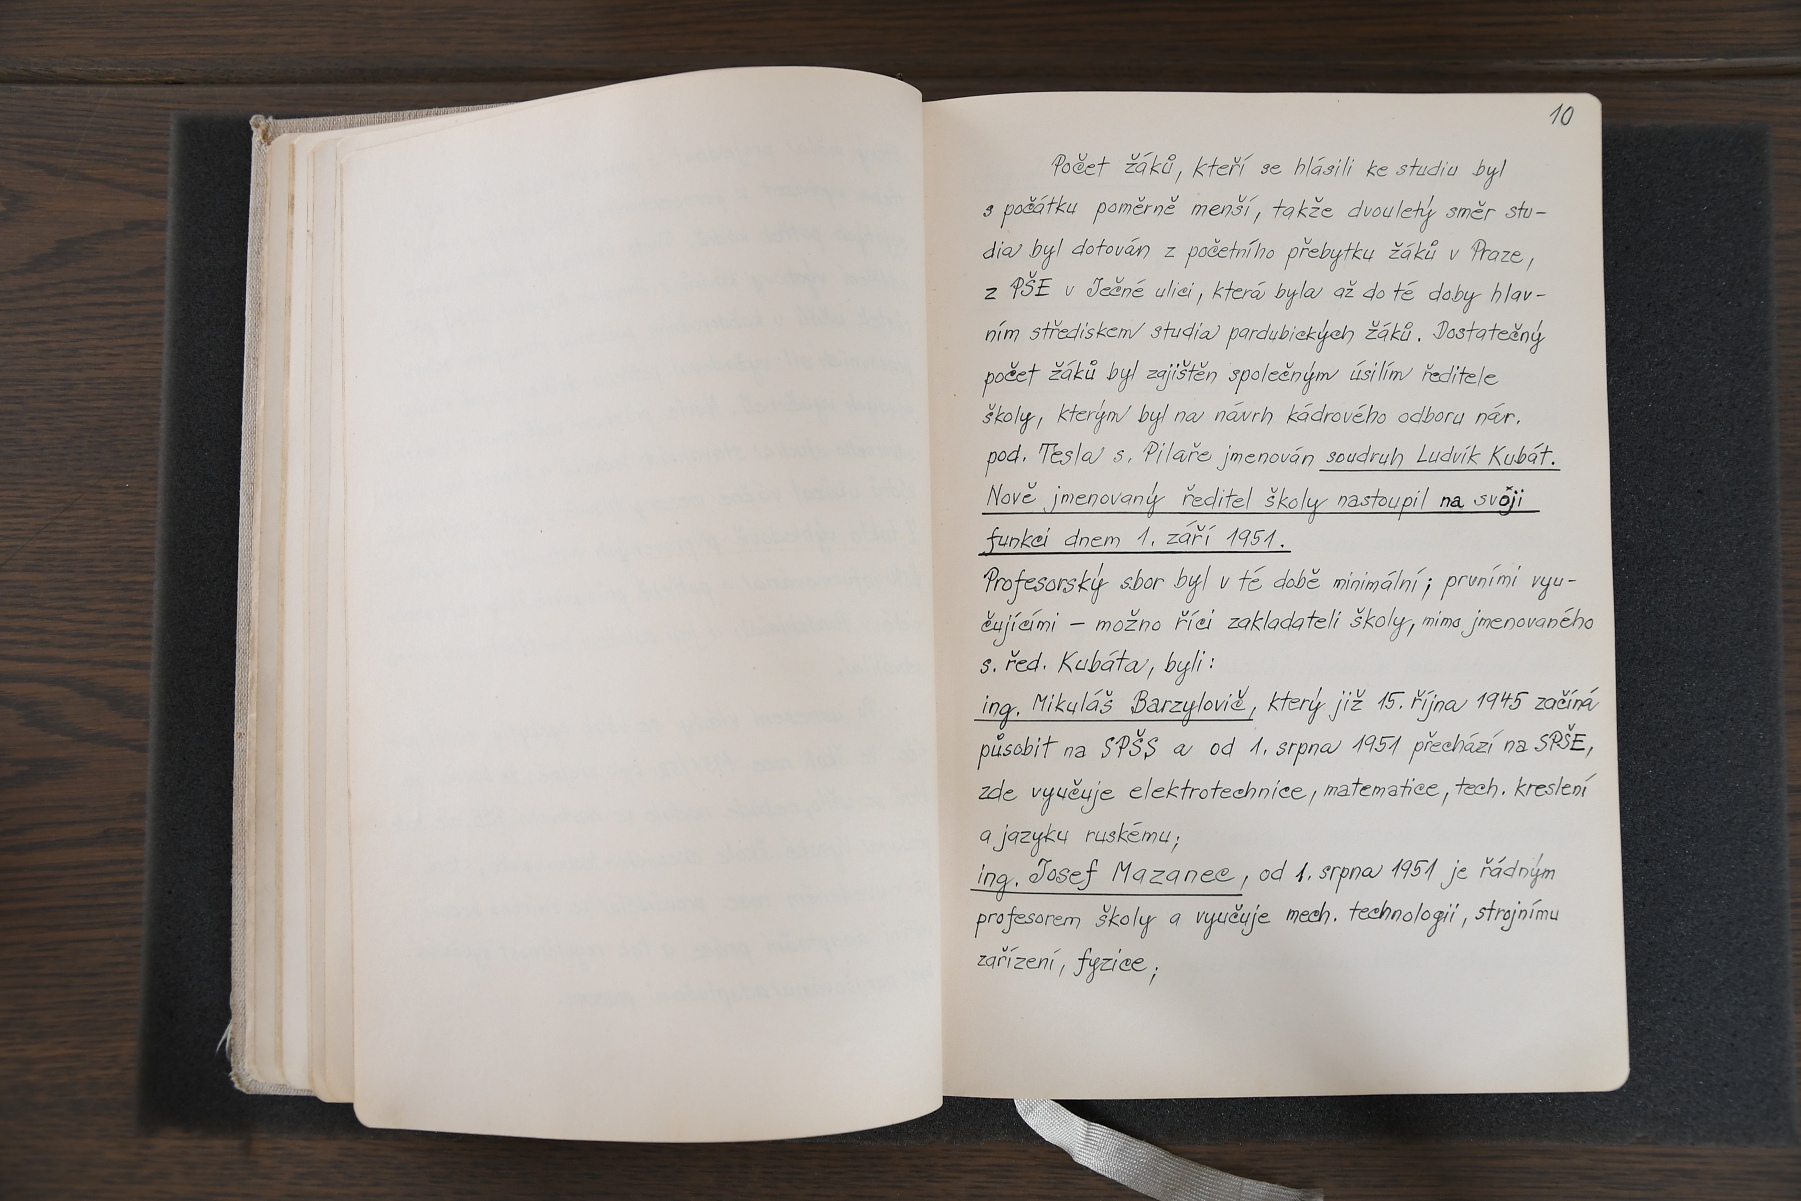 10
Počet žáků, kteří se hlásili ke studiu byl
s počátku poměrně menší, takže dvouletý směr stu-
dia byl dotován z početního přebytku žáků v Praze,
z PŠE v Ječné ulici, která byla až do té doby hlav-
ním střediskem studia pardubických žáků. Dostatečný
počet žáků byl zajištěn společným úsilím ředitele
školy, kterým byl na návrh kádrového odboru nár.
pod. Tesla s. Pilaře jmenován soudruh Ludvík Kubát.
Nově jmenovaný ředitel školy nastoupil na svoji
funkci dnem 1. září 1951.
Profesorský sbor byl v té době minimální; prvními vyu-
čujícími – možno říci zakladateli školy, mimo jmenovaného
s. řed. Kubáta, byli:
ing. Mikuláš Barzylovič, který již 15. října 1945 začíná
působit na SPŠS a od 1. srpna 1951 přechází na SPŠE,
zde vyučuje elektrotechnice, matematice, tech. kreslení
a jazyku ruskému;
ing. Josef Mazanec, od 1. srpna 1951 je řádným
profesorem školy a vyučuje mech. technologii, strojnímu
zařízení, fyzice;